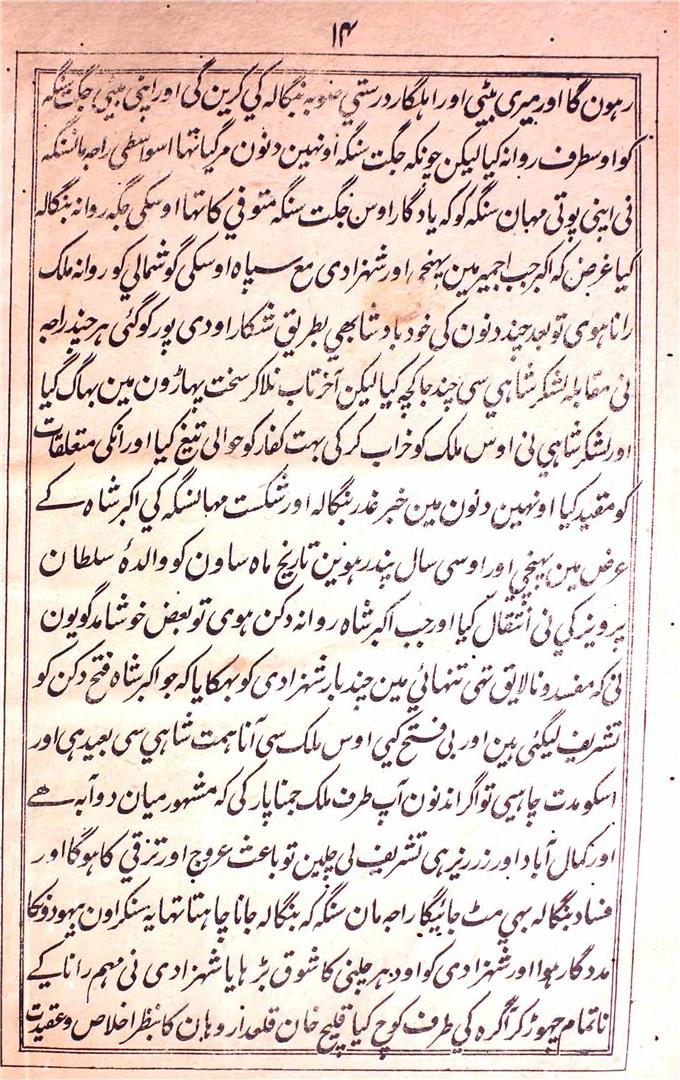 ۱۴
رہون گا اور میری بیٹی اور اہلکار درستی صوبہ بنگالہ کی کرین گی اور اپنی بیٹی جگت سنگہ
کو اوسطرف روانہ کیا لیکن چونکہ جگت سنگہ اونہین دنون مرگیا تہا اسواسطی راجہ مانسنگہ
نی اپنی پوتی مہان سنگہ کو کہ یادگار اوس جگت سنگہ متوفی کا تہا اوسکی جگہ روانہ بنگالہ
کیا غرض کہ اکبر جب اجمیر مین پہنچی اور شہزادی مع سپاہ اوسکی گوشمالی کو روانہ ملک
رانا ہوی تو بعد چند دنون کی خود بادشا بھی بطریق شکار اودی پور کو گئی ہر چند راجہ
نی مقابلہ لشکر شاہی سی چند جا کچہ کیا لیکن آخر تاب نلاکر سخت پہاڑون مین بہاگ گیا
اور لشکر شاہی نی اوس ملک کو خراب کر کی بہت کفار کو حوالی تیغ کیا اور انکی متعلقات
کو مقید کیا اونہین دنون مین خبر غدر بنگالہ اور شکست مہانسنگہ کی اکبر شاہ کے
عرض مین پہنچی اور اوسی سال پندرہوین تاریخ ماہ ساون کو والدۂ سلطان
پرویز کی نی انتقال کیا اور جب اکبر شاہ روانہ دکن ہوی تو بعض خوشامد گویون
نی کہ مفسد و نالایق تہی تنہائی مین چند بار شہزادی کو بہکایا کہ جو اکبر شاہ فتح دکن کو
تشریف لیگئی ہین اور بی فتح کیی اوس ملک سی آنا ہمت شاہی سی بعید ہی اور
اسکو مدت چاہیی تو اگر اندنون آپ طرف ملک جمنا پار کی کہ مشہور میان دوآبہ ہے
اور کمال آباد اور زرریز ہی تشریف لی چلین تو باعث عروج اور ترقی کا ہوگا اور
فساد بنگالہ بہی مٹ جائیگا راجہ مان سنگہ کہ بنگالہ جانا چاہتا تہا یہ سنکر اون
مددگار ہوا اور شہزادی کو اودہر چلنی کا شوق بڑہایا شہزادی نی مہم رانا کے
ناتمام چہوڑ کر آگرہ کی طرف کوچ کیا قلیچ خان قلعدار وہان کا بنظر اخلاص و عقیدت